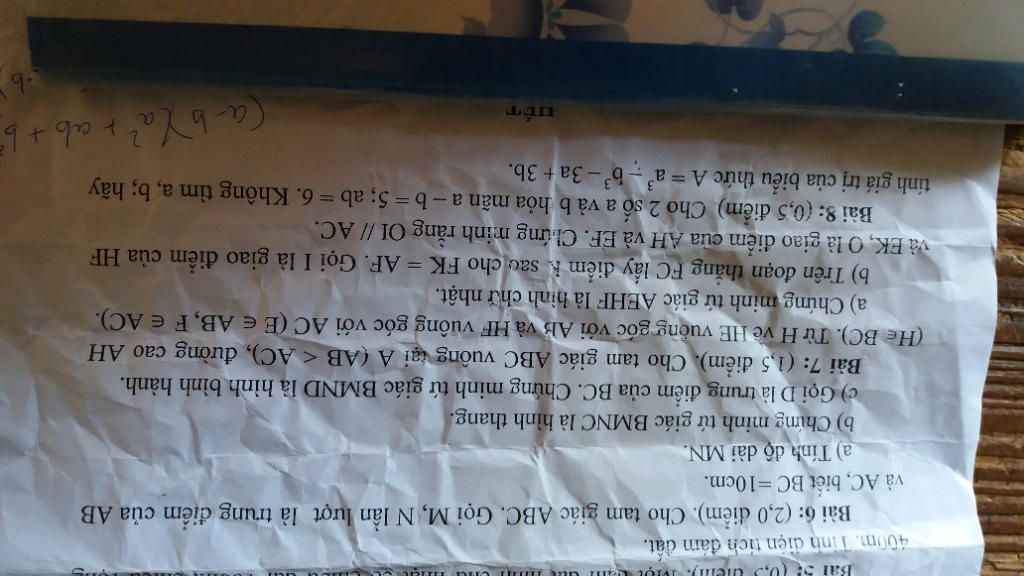 Bài 5: (0,5 điểm). Một đám đất hình chữ nhật có chiều dài
400m. Tính diện tích đám đất.
Bài 6: (2,0 điểm). Cho tam giác ABC. Gọi M, N lần lượt là trung điểm của AB
và AC, biết BC =10cm.
a) Tính độ dài MN.
b) Chứng minh tứ giác BMNC là hình thang.
c) Gọi D là trung điểm của BC. Chứng minh tứ giác BMND là hình bình hành.
Bài 7: (1,5 điểm). Cho tam giác ABC vuông tại A (AB < AC), đường cao AH
(H∈ BC). Từ H vẽ HE vuông góc với AB và HF vuông góc với AC (E ∈ AB, F ∈ AC).
a) Chứng minh tứ giác AEHF là hình chữ nhật.
b) Trên đoạn thẳng FC lấy điểm K sao cho FK = AF. Gọi I là giao điểm của HF
và EK, O là giao điểm của AH và EF. Chứng minh rằng OI // AC.
Bài 8: (0,5 điểm) Cho 2 số a và b thỏa mãn a – b = 5; ab = 6. Không tìm a, b; hãy
tính giá trị của biểu thức A = a³ – b³ – 3a + 3b.
(a-b)(a² + ab + b²